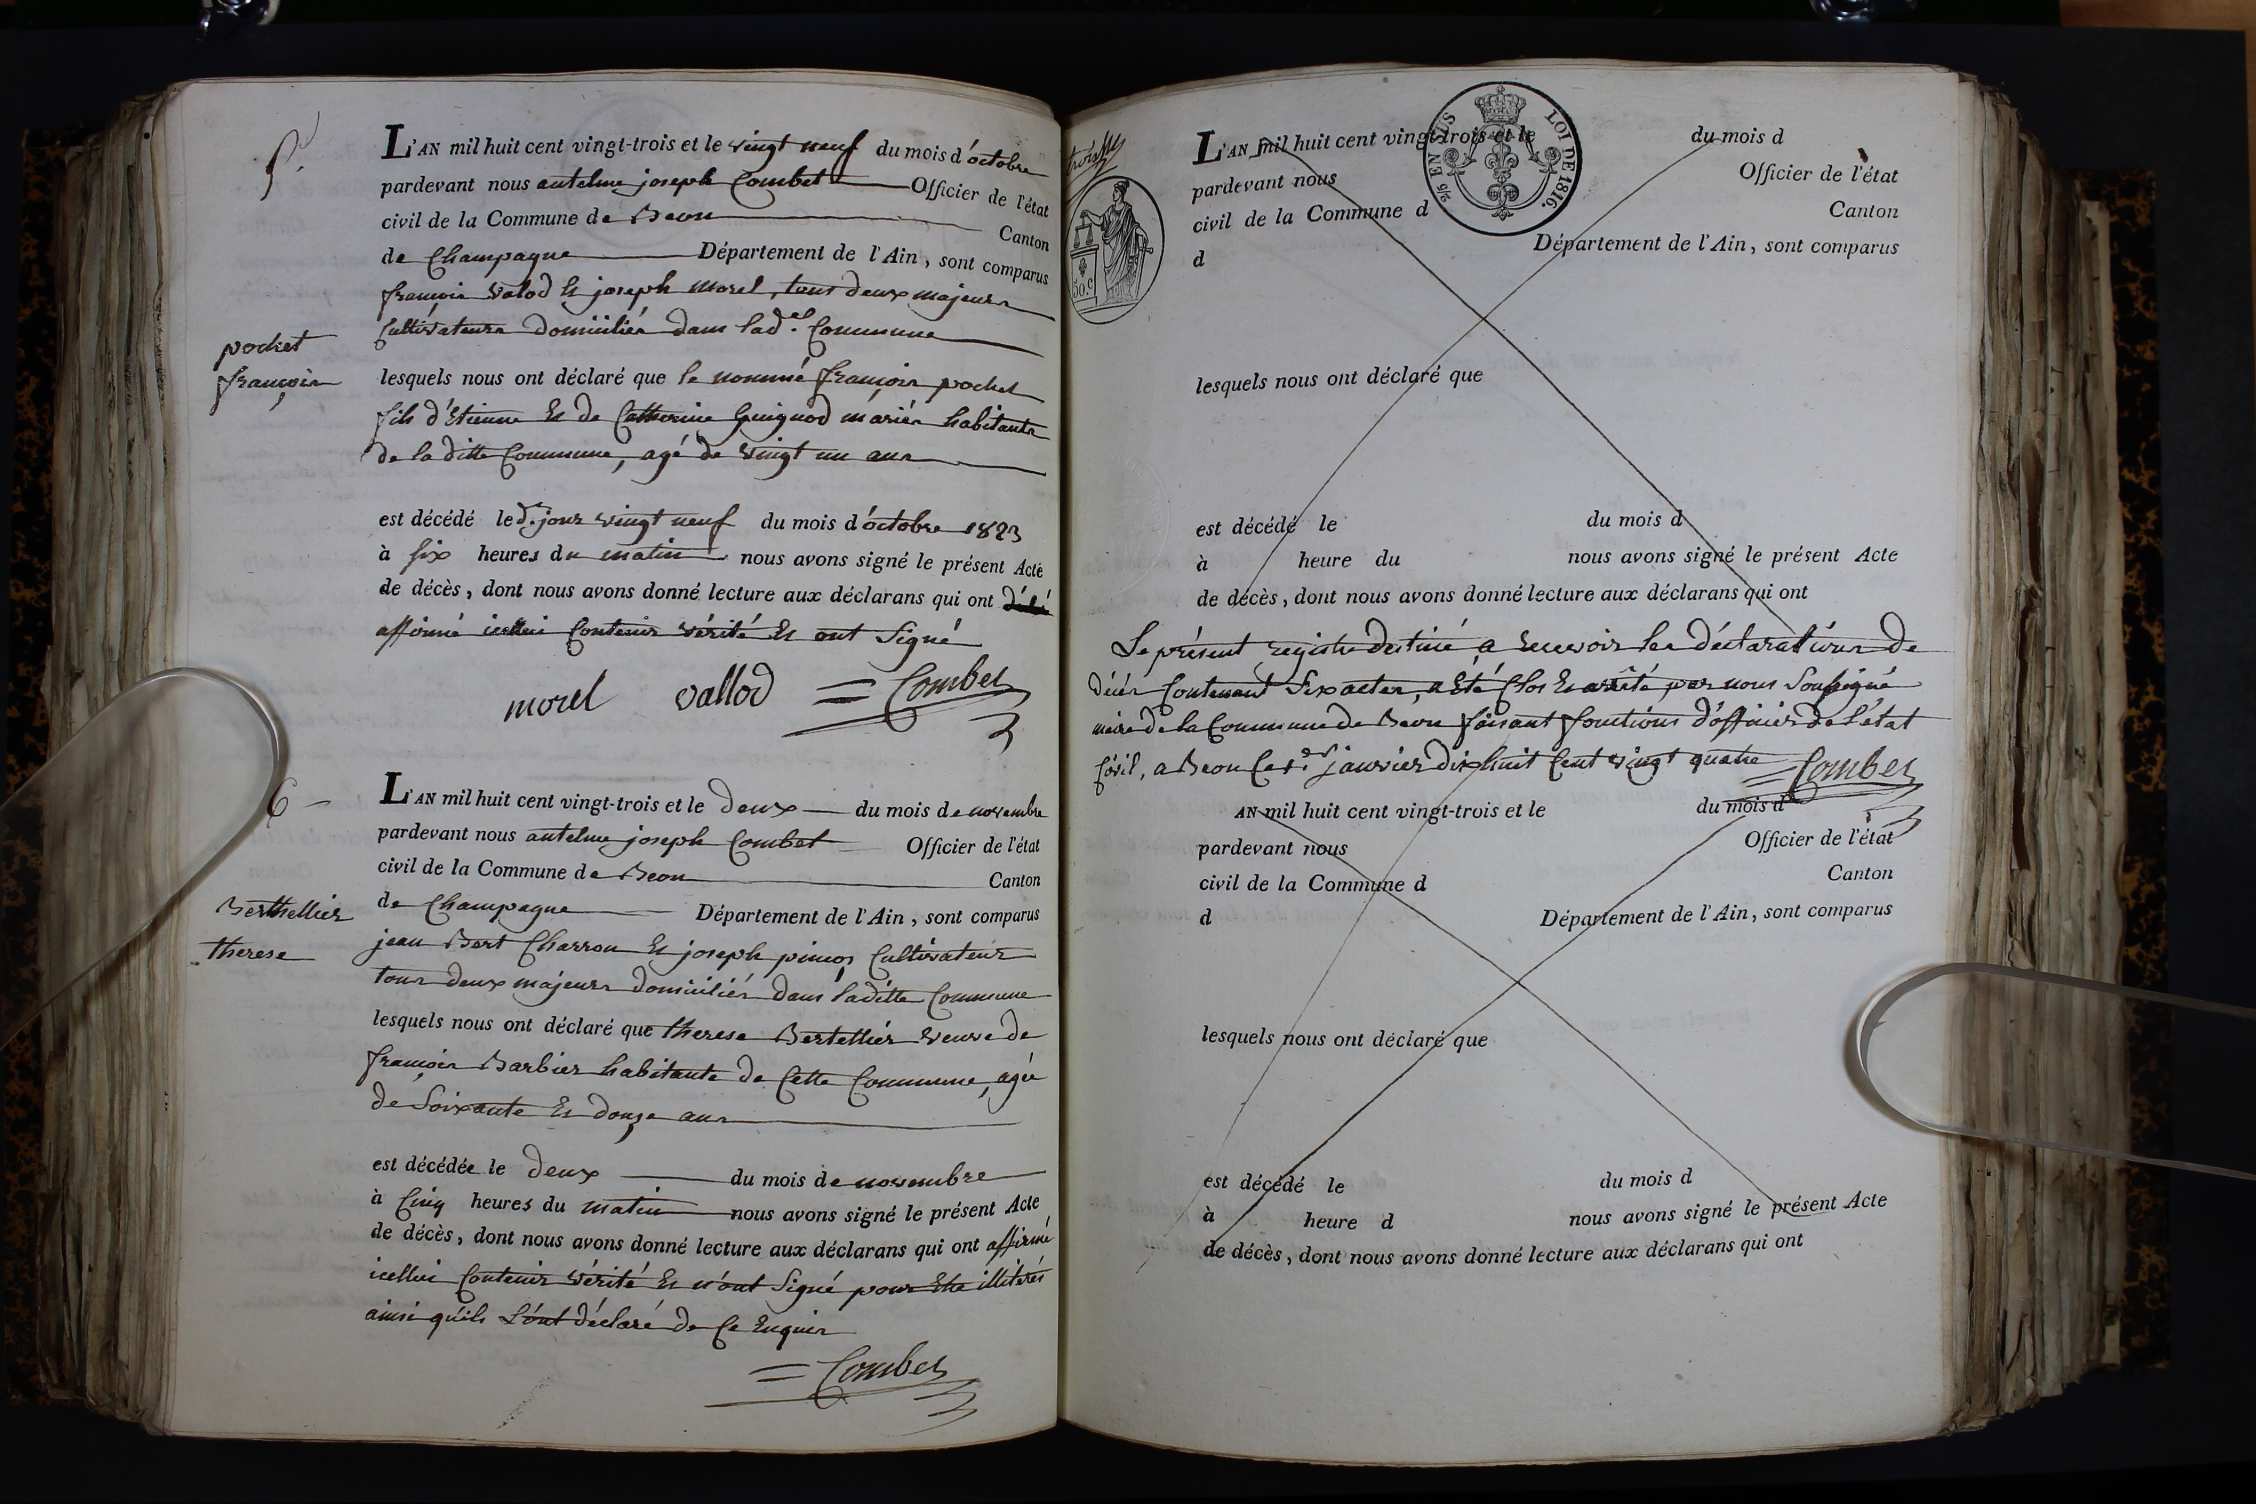 5.
L'AN mil huit cent vingt-trois et le vingt neuf du mois d'octobre
pardevant nous antelme joseph Combet Officier de l'état
civil de la Commune de Beon Canton
de Champagne Département de l'Ain, sont comparus
françois valod et joseph morel, tous deux majeurs
Cultivateurs domiciliés dans lad.e Commune
pochet
françois
lesquels nous ont déclaré que le nommé françois pochet
fils d'Etienne et de Catherine Guignod mariés habitants
de la ditte Commune, agé de vingt un ans
est décédé le d. jour vingt neuf du mois d'octobre 1823
à six heures du matin nous avons signé le présent Acte
de décès, dont nous avons donné lecture aux déclarans qui ont
affirmé icellui Contenir vérité et ont Signé
morel vallod Combet
6
L'AN mil huit cent vingt-trois et le deux du mois de novembre
pardevant nous antelme joseph Combet Officier de l'état
civil de la Commune de Beon Canton
de Champagne Département de l'Ain, sont comparus
Berthellier
therese
jean Bert Charron et joseph Cultivateur
tous deux majeurs domiciliés dans laditte Commune
lesquels nous ont déclaré que therese Bertellier veuve de
françois Barbier habitante de Cette Commune, agée
de Soixante et douze ans
est décédée le deux du mois de novembre
à Cinq heures du matin nous avons signé le présent Acte
de décès, dont nous avons donné lecture aux déclarans qui ont affirmé
icellui Contenir vérité et n'ont Signé pour Etre illiterés
ainsi qu'ils L'ont déclaré de Ce Enquis
Combet
50.c
EN SUS
LOI DE 1816.
L'AN mil huit cent vingt-trois et le du mois d
pardevant nous Officier de l'état
civil de la Commune d Canton
d Département de l'Ain, sont comparus
lesquels nous ont déclaré que
est décédé le du mois d
à heure du nous avons signé le présent Acte
de décès, dont nous avons donné lecture aux déclarans qui ont
Le présent registre destiné a recevoir les déclarations de
décés Contenant Six actes, a Eté Clos et arrêté par nous Soussigné
maire de la Commune de Beon faisant fonctions d'officier de l'état
Civil, a Beon Ce 1.er janvier dix huit Cent vingt quatre Combet
AN mil huit cent vingt-trois et le du mois d
pardevant nous Officier de l'état
civil de la Commune d Canton
d Département de l'Ain, sont comparus
lesquels nous ont déclaré que
est décédé le du mois d
à heure d nous avons signé le présent Acte
de décès, dont nous avons donné lecture aux déclarans qui ont